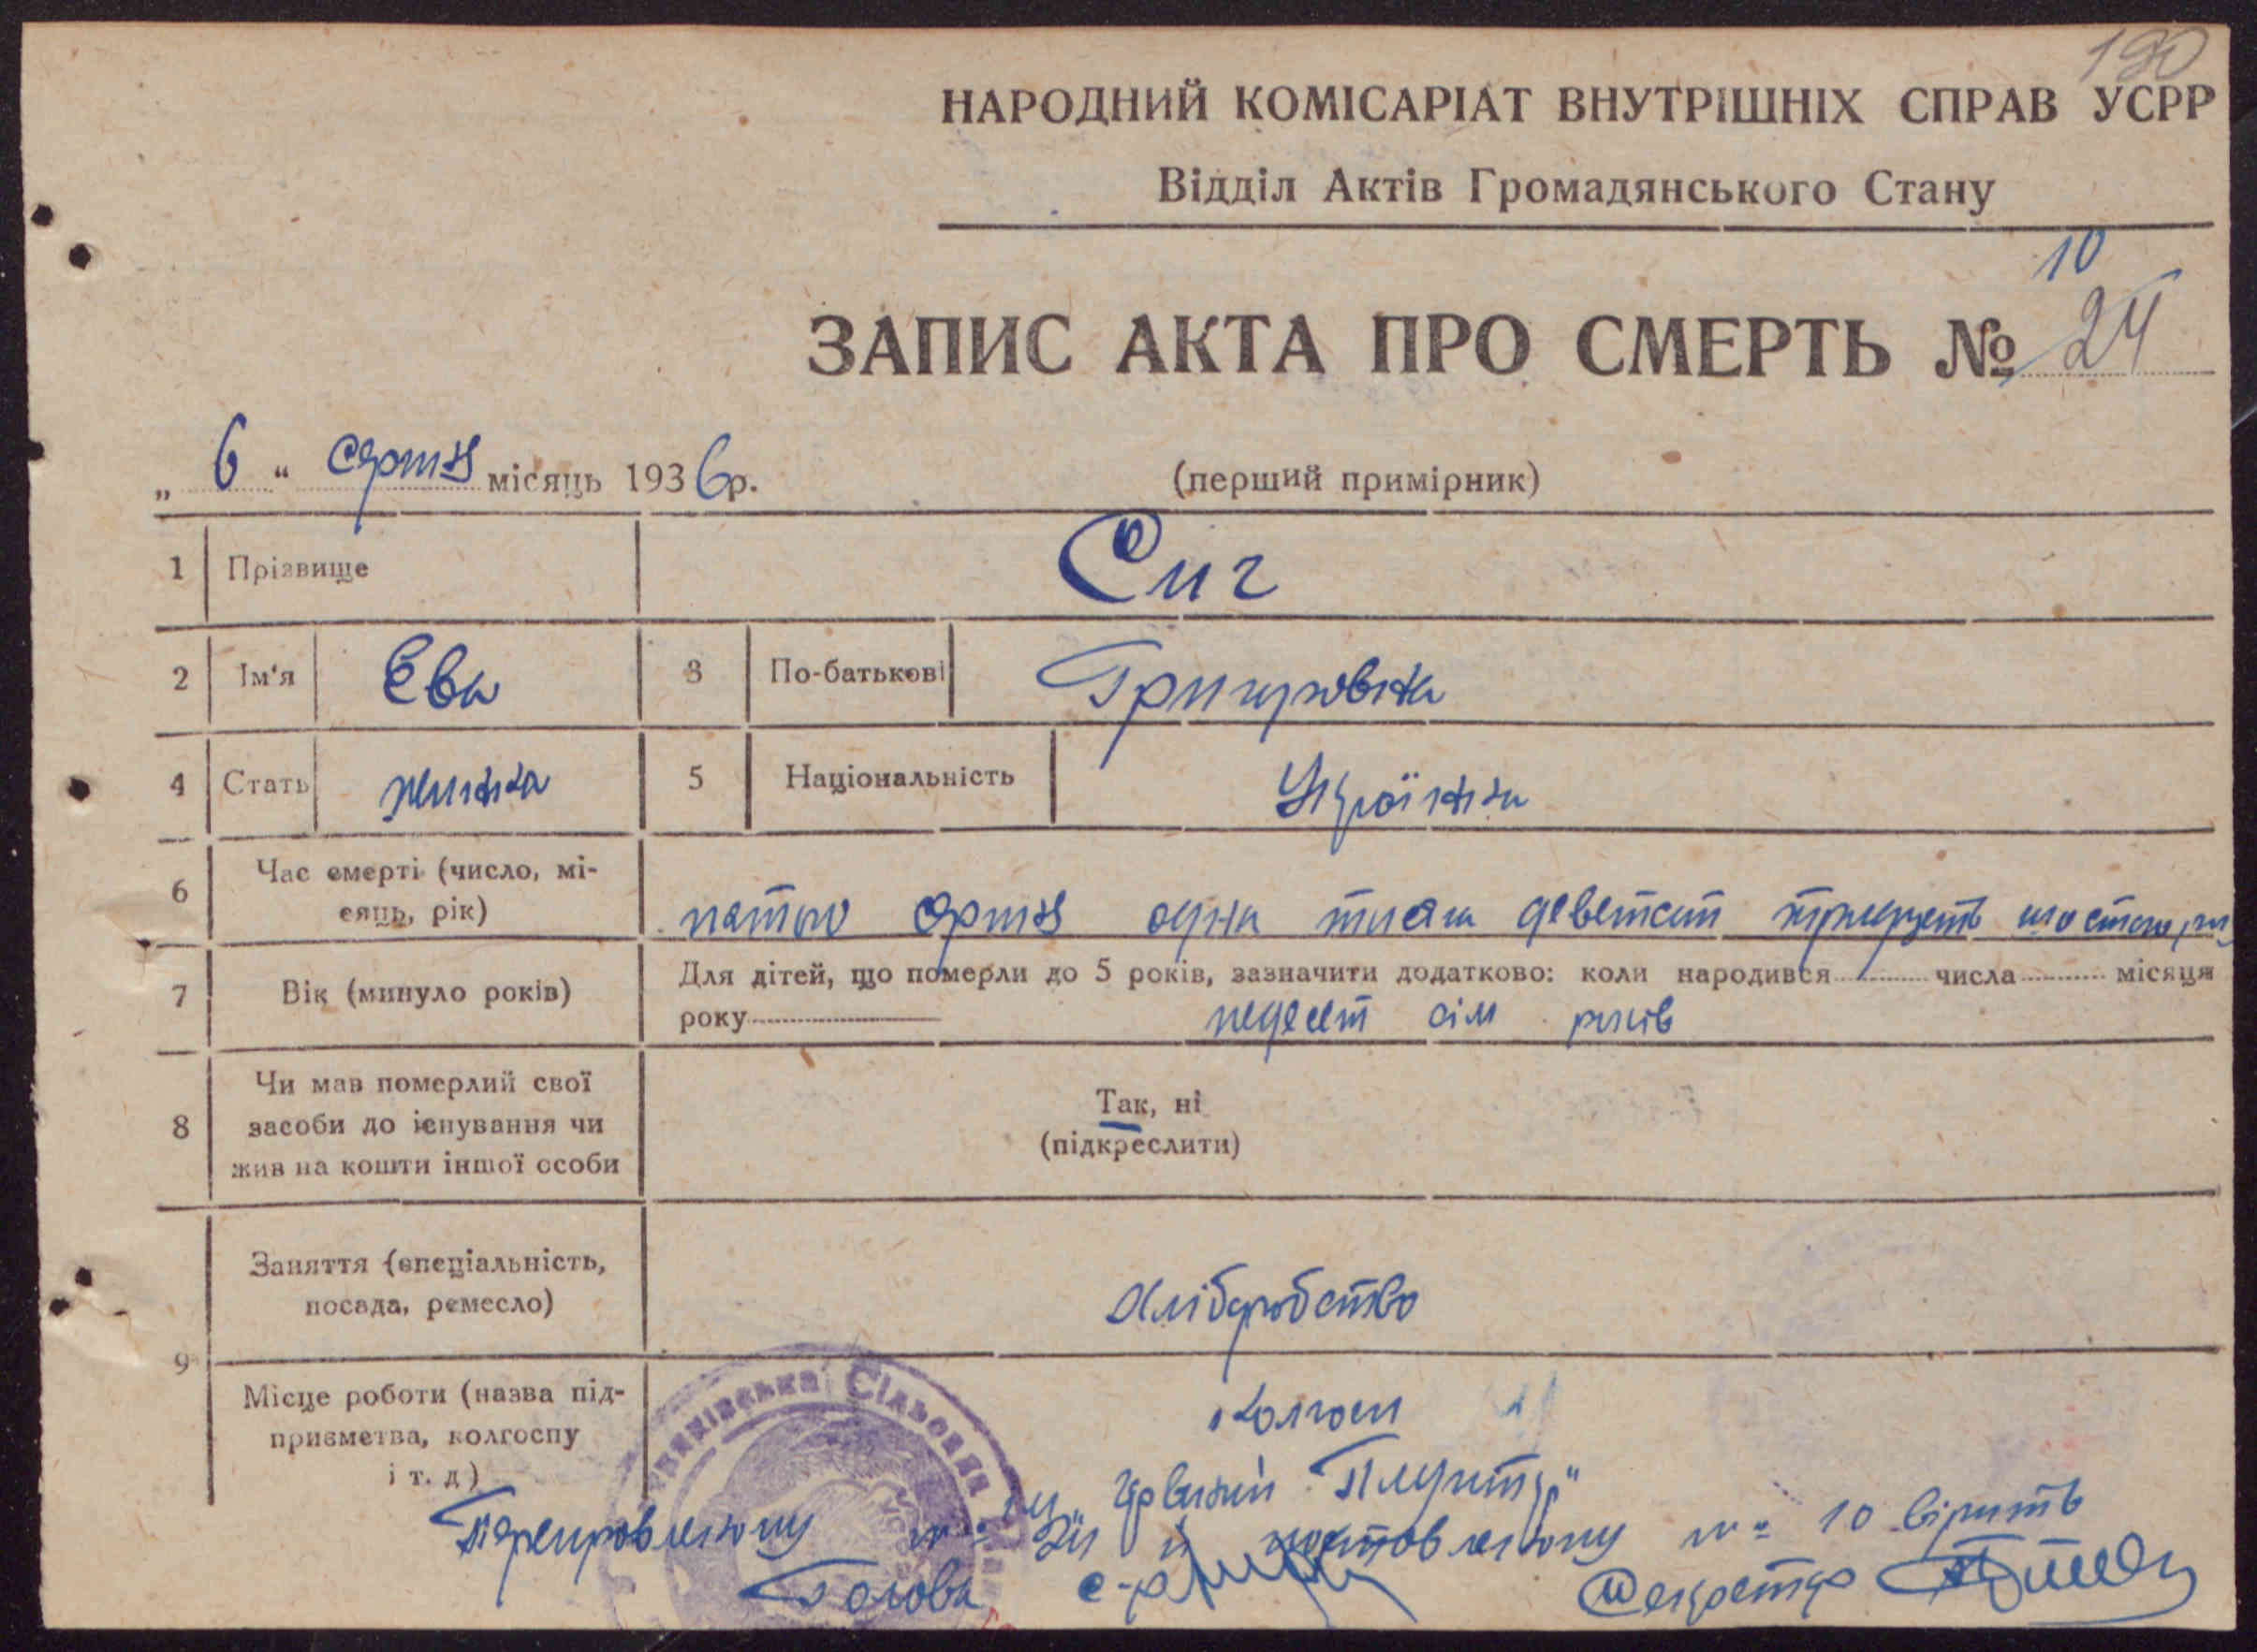 190
НАРОДНИЙ КОМІСАРІАТ ВНУТРІШНІХ СПРАВ УСРР
Відділ Актів Громадянського Стану
10
ЗАПИС АКТА ПРО СМЕРТЬ № 24
„ 6 “ серпня місяць 1936р. (перший примірник)
1 Прізвище Сич
2 Ім'я Єва 3 По-батькові Григоровна
4 Стать жинка 5 Національність Українка
6 Час смерті (число, мі-
сяць, рік)
одна тисяча деветсот тридцеть шостого
7 Вік (минуло років) Для дітей, що померли до 5 років, зазначити додатково: коли народився числа місяця
року педесет сім років
8 Чи мав померлий свої
засоби до існування чи
жив на кошти іншої особи
Так, ні
(підкреслити)
9 Заняття (спеціальність,
посада, ремесло)
Хліборобство
Місце роботи (назва під-
приємства, колгоспу
і т. д)
Колгосп
Сільська
Голова
№ 10 вірить
Секретар